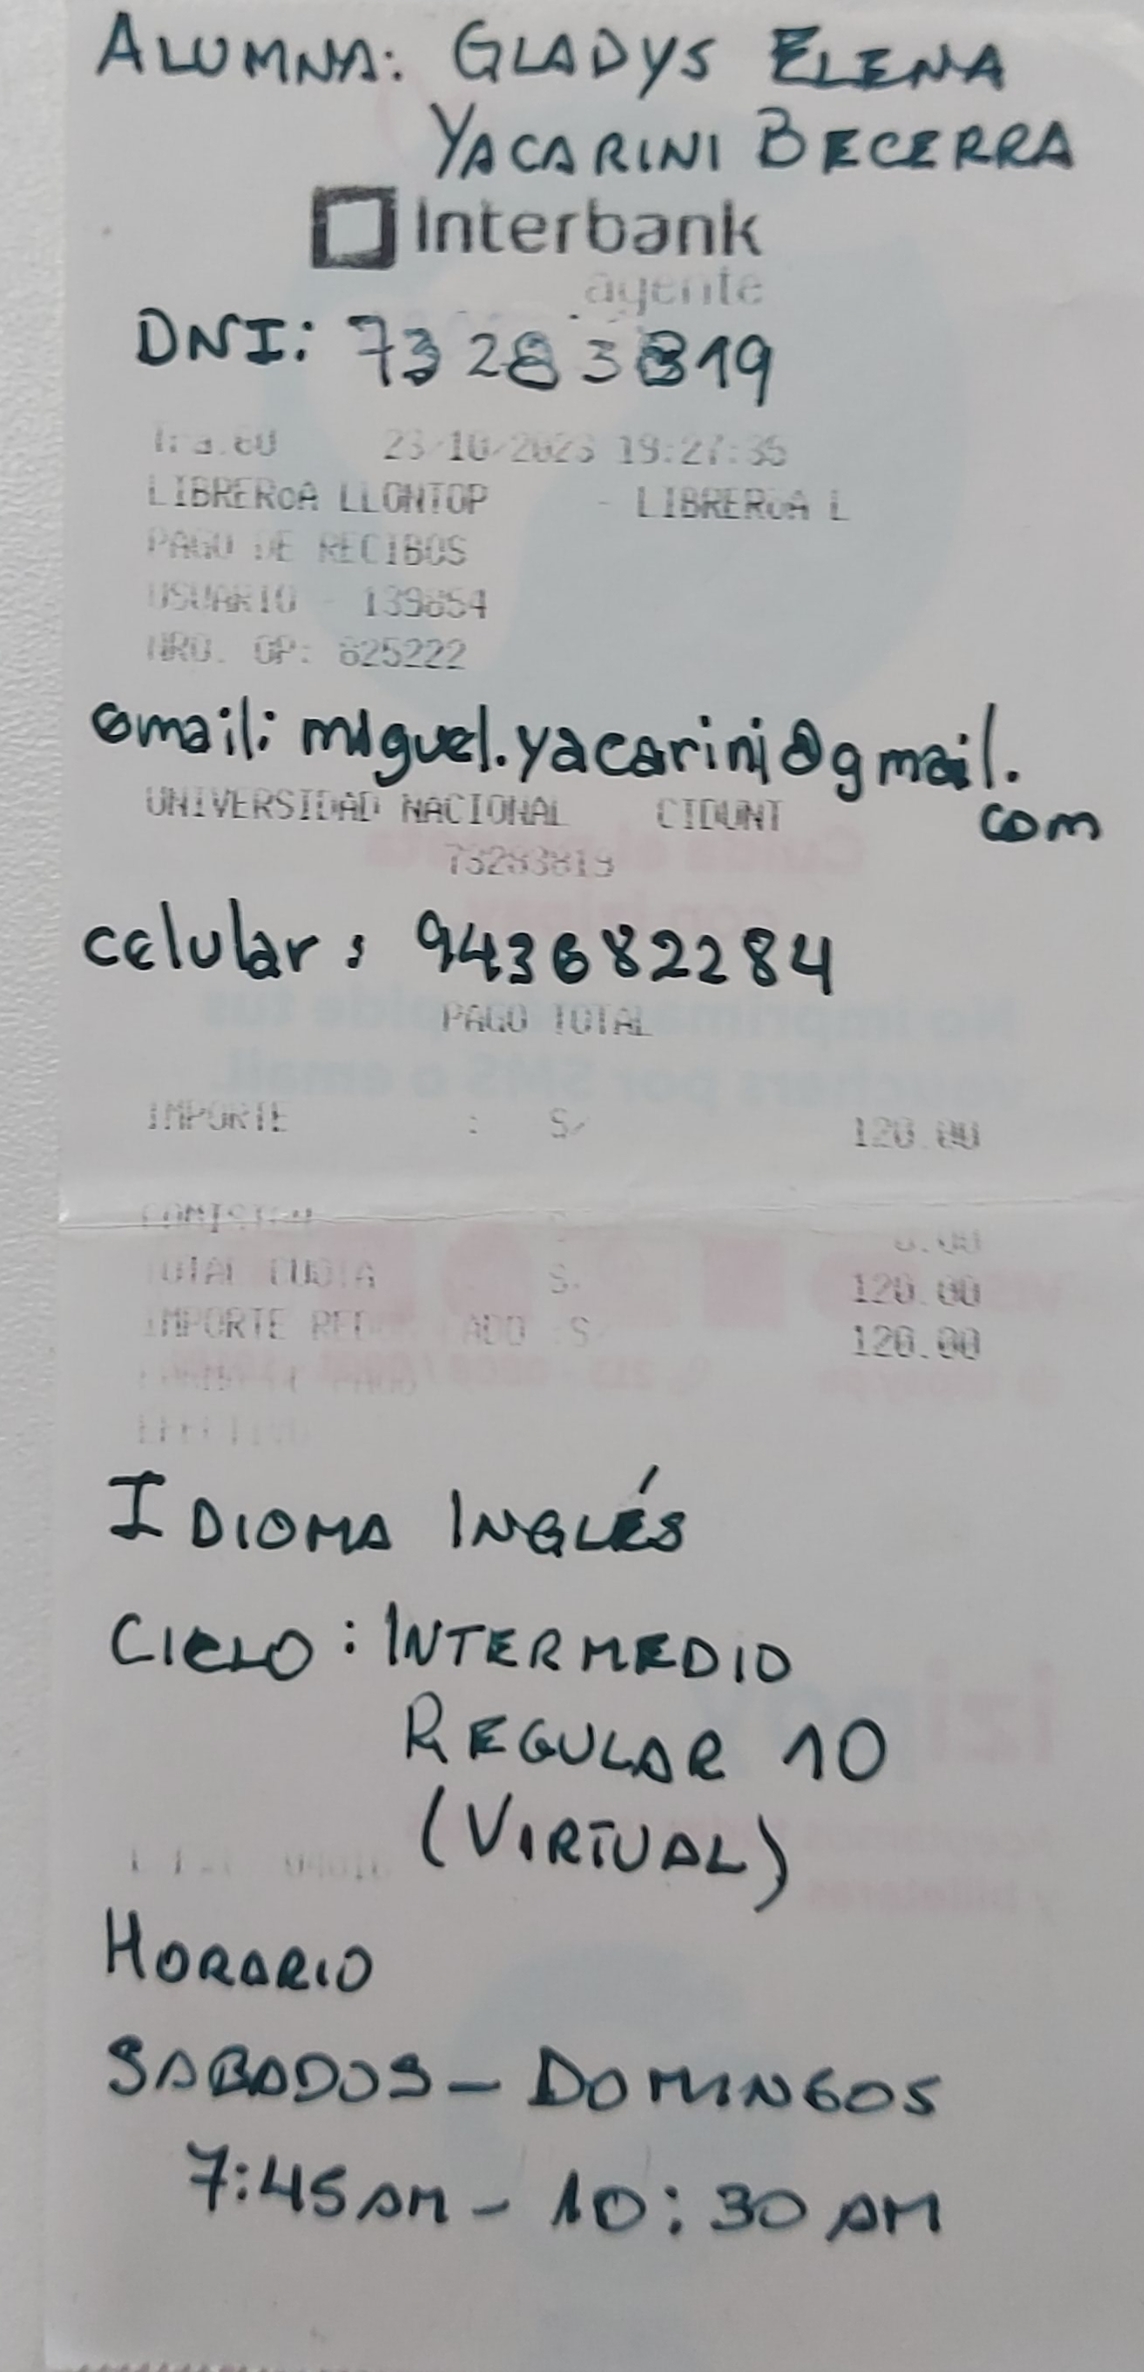 ALUMNA: GLADYS ELENA
YACARINI BECERRA
Interbank
agente
DNI: 73283819
23/10/2023 19:27:35
LIBREROA LLONTOP - LIBREROA L
PAGO DE RECIBOS
USUARIO - 139854
NRO. OP: 625222
email: miguel.yacarini@gmail.
com
UNIVERSIDAD NACIONAL CIDUNT
73283819
celular: 943682284
PAGO TOTAL
IMPORTE : S/ 120.00
COMISION 0.00
TOTAL CUOTA S/ 120.00
IMPORTE REDONDEADO S/ 120.00
EFECTIVO
IDIOMA INGLÉS
CICLO: INTERMEDIO
REGULAR 10
(VIRTUAL)
HORARIO
SABADOS - DOMINGOS
7:45 AM - 10:30 AM